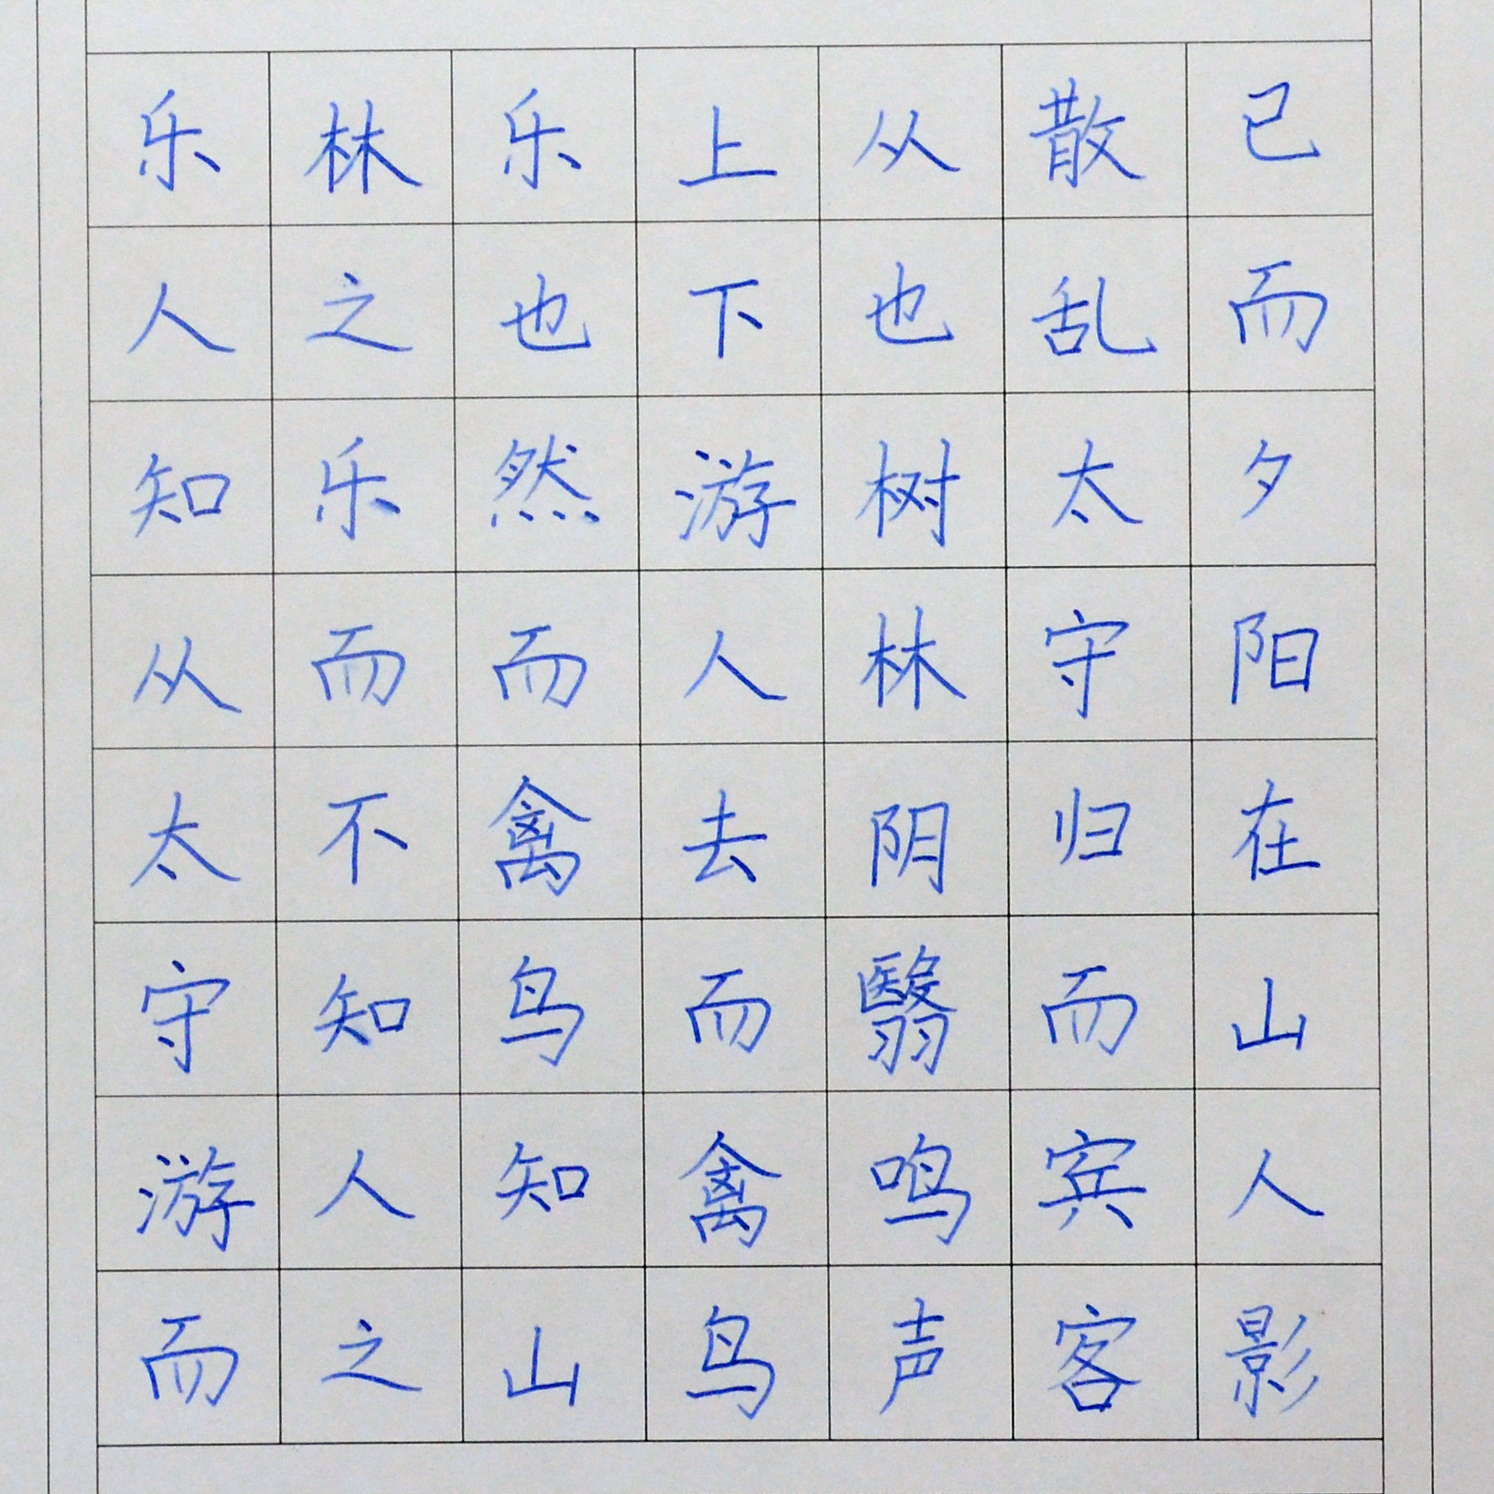 已而夕阳在山人影
散乱太守归而宾客
从也树林阴翳鸣声
上下游人去而禽鸟
乐也然而禽鸟知山
林之乐而不知人之
乐人知从太守游而